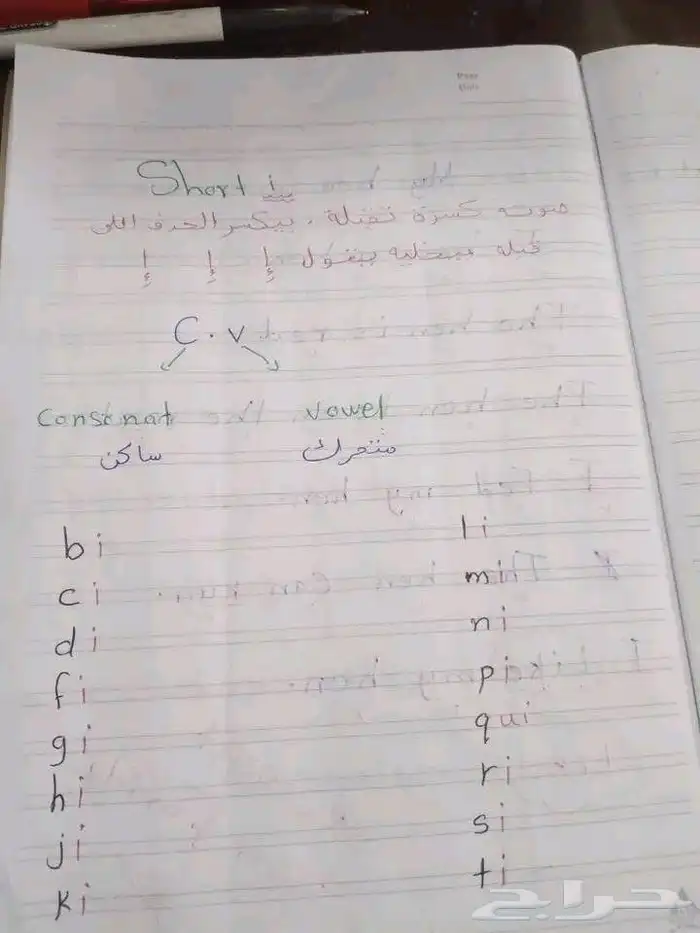 Short i
صوت كسرة ثقيلة ، بيكسر الحرف اللى
قبله بيخليه بيقول إِ إِ إِ
C . v
Consonat vowel
ساكن متحرك
bi li
ci mi
di ni
fi pi
gi qui
hi ri
ji si
ki ti
حراج